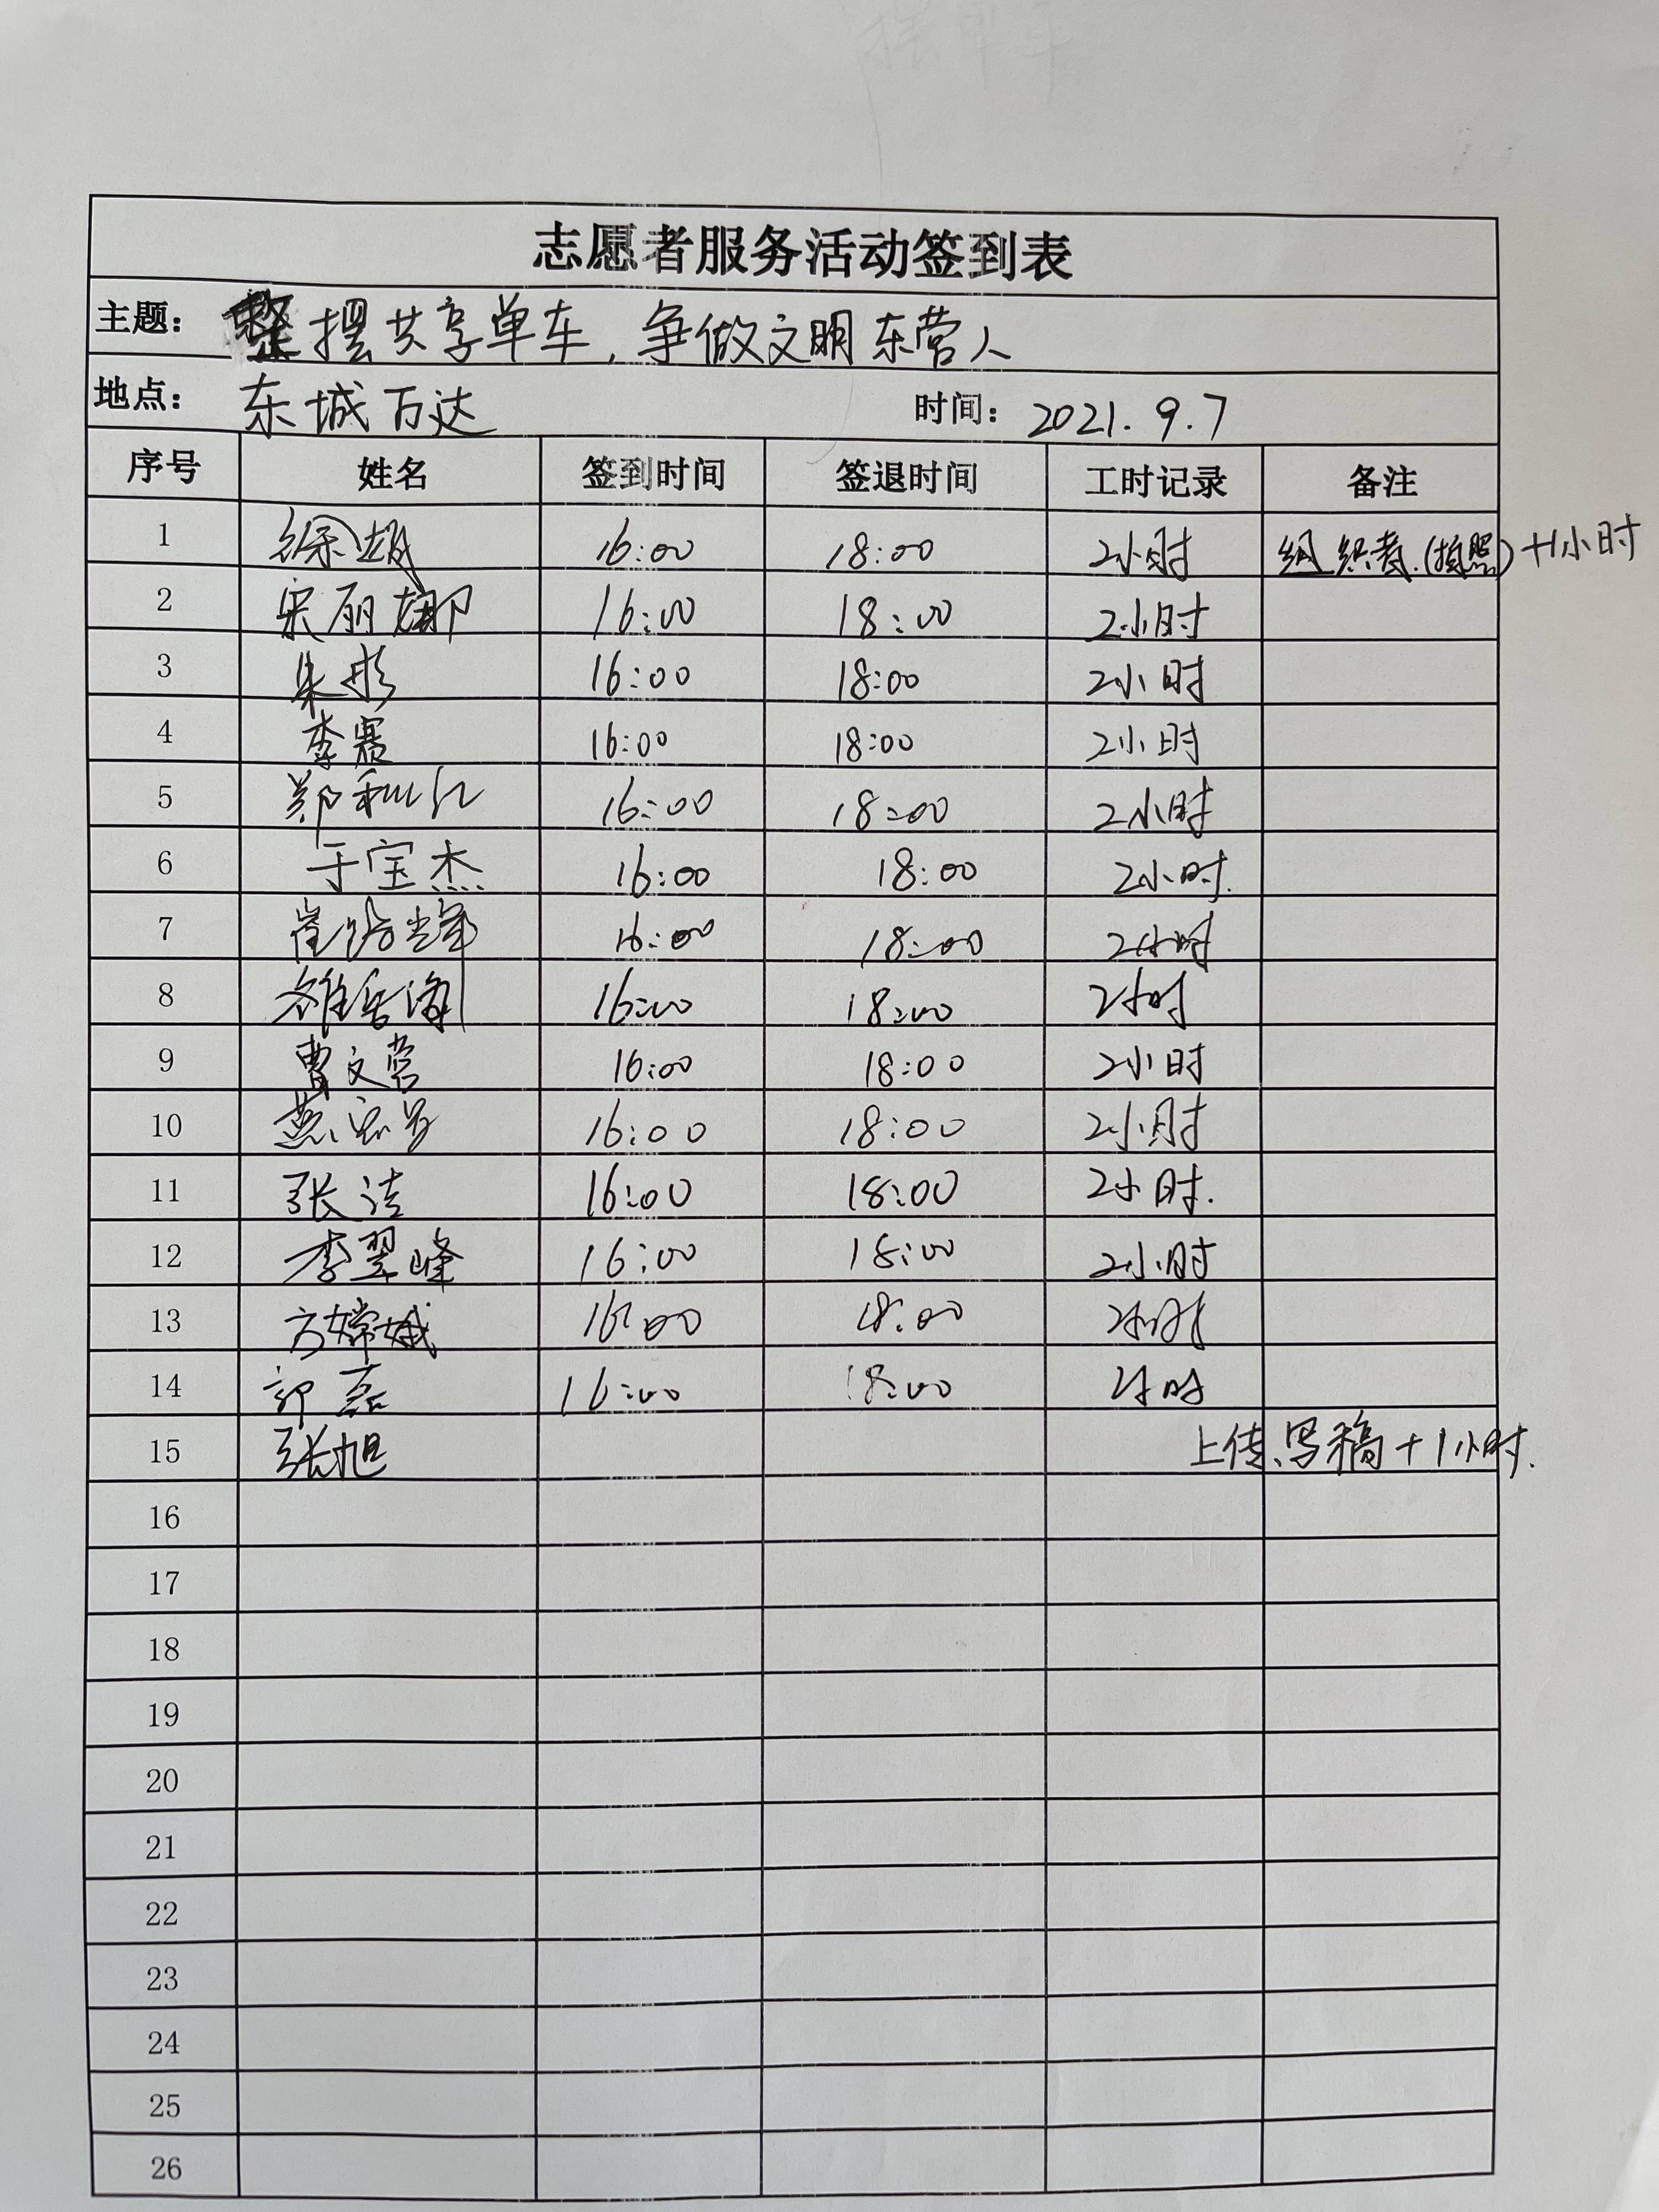 志愿者服务活动签到表
主题: 整摆共享单车,争做文明东营人
地点: 东城万达 时间: 2021.9.7
序号 姓名 签到时间 签退时间 工时记录 备注
1 徐越 16:00 18:00 2小时 组织者.(拍照)+1小时
2 宋丽娜 16:00 18:00 2小时
3 朱彬 16:00 18:00 2小时
4 李赛 16:00 18:00 2小时
5 郑和红 16:00 18:00 2小时
6 于宝杰 16:00 18:00 2小时.
7 崔 16:00 18:00 2小时
8 16:00 18:00 2小时
9 曹文营 16:00 18:00 2小时
10 燕 16:00 18:00 2小时
11 张洁 16:00 18:00 2小时.
12 李翌峰 16:00 18:00 2小时
13 方嫦娥 16:00 18:00 2小时
14 郭磊 16:00 18:00 2小时
15 张旭 上传、写稿+1小时.
16
17
18
19
20
21
22
23
24
25
26